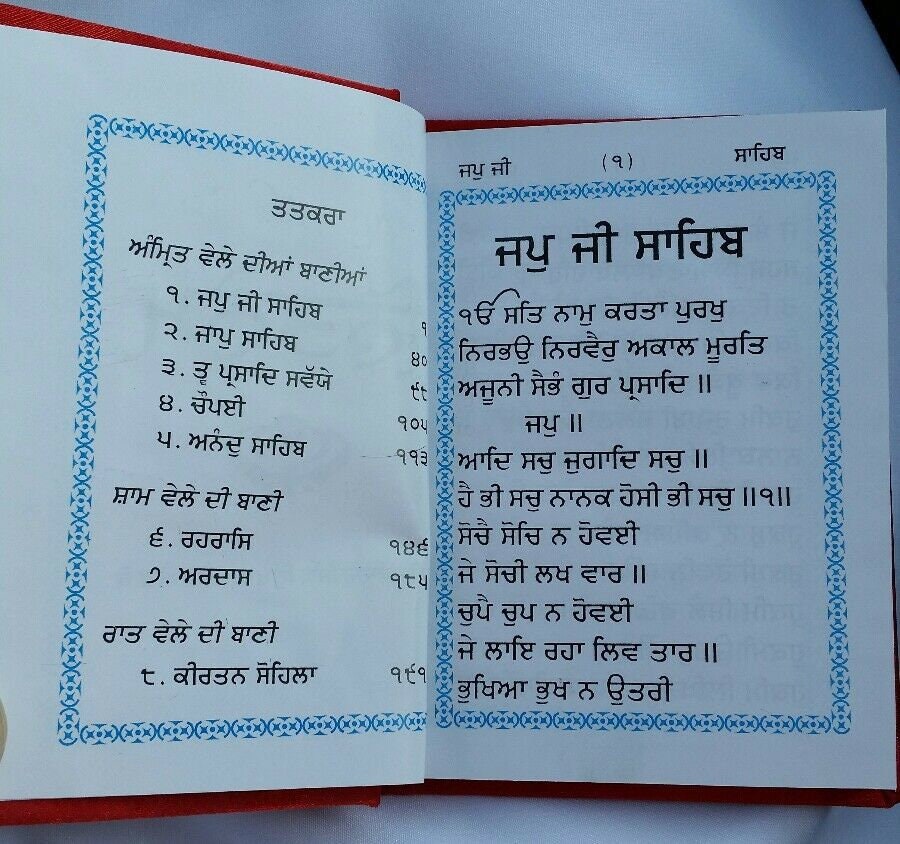 ਤਤਕਰਾ
ਅੰਮ੍ਰਿਤ ਵੇਲੇ ਦੀਆਂ ਬਾਣੀਆਂ
੧. ਜਪੁ ਜੀ ਸਾਹਿਬ ੧
੨. ਜਾਪੁ ਸਾਹਿਬ ੪੦
੩. ਤ੍ਵ ਪ੍ਰਸਾਦਿ ਸਵੱਯੇ ੯੮
੪. ਚੌਪਈ ੧੦੫
੫. ਅਨੰਦੁ ਸਾਹਿਬ ੧੧੩
ਸ਼ਾਮ ਵੇਲੇ ਦੀ ਬਾਣੀ
੬. ਰਹਰਾਸਿ ੧੪੬
੭. ਅਰਦਾਸ ੧੮੫
ਰਾਤ ਵੇਲੇ ਦੀ ਬਾਣੀ
੮. ਕੀਰਤਨ ਸੋਹਿਲਾ ੧੯੧
ਜਪੁ ਜੀ (੧) ਸਾਹਿਬ
ਜਪੁ ਜੀ ਸਾਹਿਬ
ੴ ਸਤਿ ਨਾਮੁ ਕਰਤਾ ਪੁਰਖੁ
ਨਿਰਭਉ ਨਿਰਵੈਰੁ ਅਕਾਲ ਮੂਰਤਿ
ਅਜੂਨੀ ਸੈਭੰ ਗੁਰ ਪ੍ਰਸਾਦਿ ॥
ਜਪੁ ॥
ਆਦਿ ਸਚੁ ਜੁਗਾਦਿ ਸਚੁ ॥
ਹੈ ਭੀ ਸਚੁ ਨਾਨਕ ਹੋਸੀ ਭੀ ਸਚੁ ॥੧॥
ਸੋਚੈ ਸੋਚਿ ਨ ਹੋਵਈ
ਜੇ ਸੋਚੀ ਲਖ ਵਾਰ ॥
ਚੁਪੈ ਚੁਪ ਨ ਹੋਵਈ
ਜੇ ਲਾਇ ਰਹਾ ਲਿਵ ਤਾਰ ॥
ਭੁਖਿਆ ਭੁਖ ਨ ਉਤਰੀ